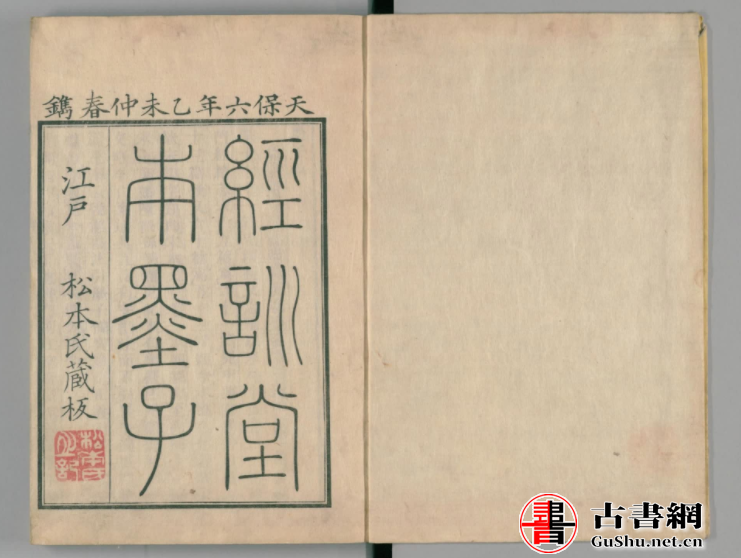 天保六年乙未仲春鐫
經訓堂
本墨子
江戸 松本氏蔵板
松本氏
書
古書網
GuShu.net.cn